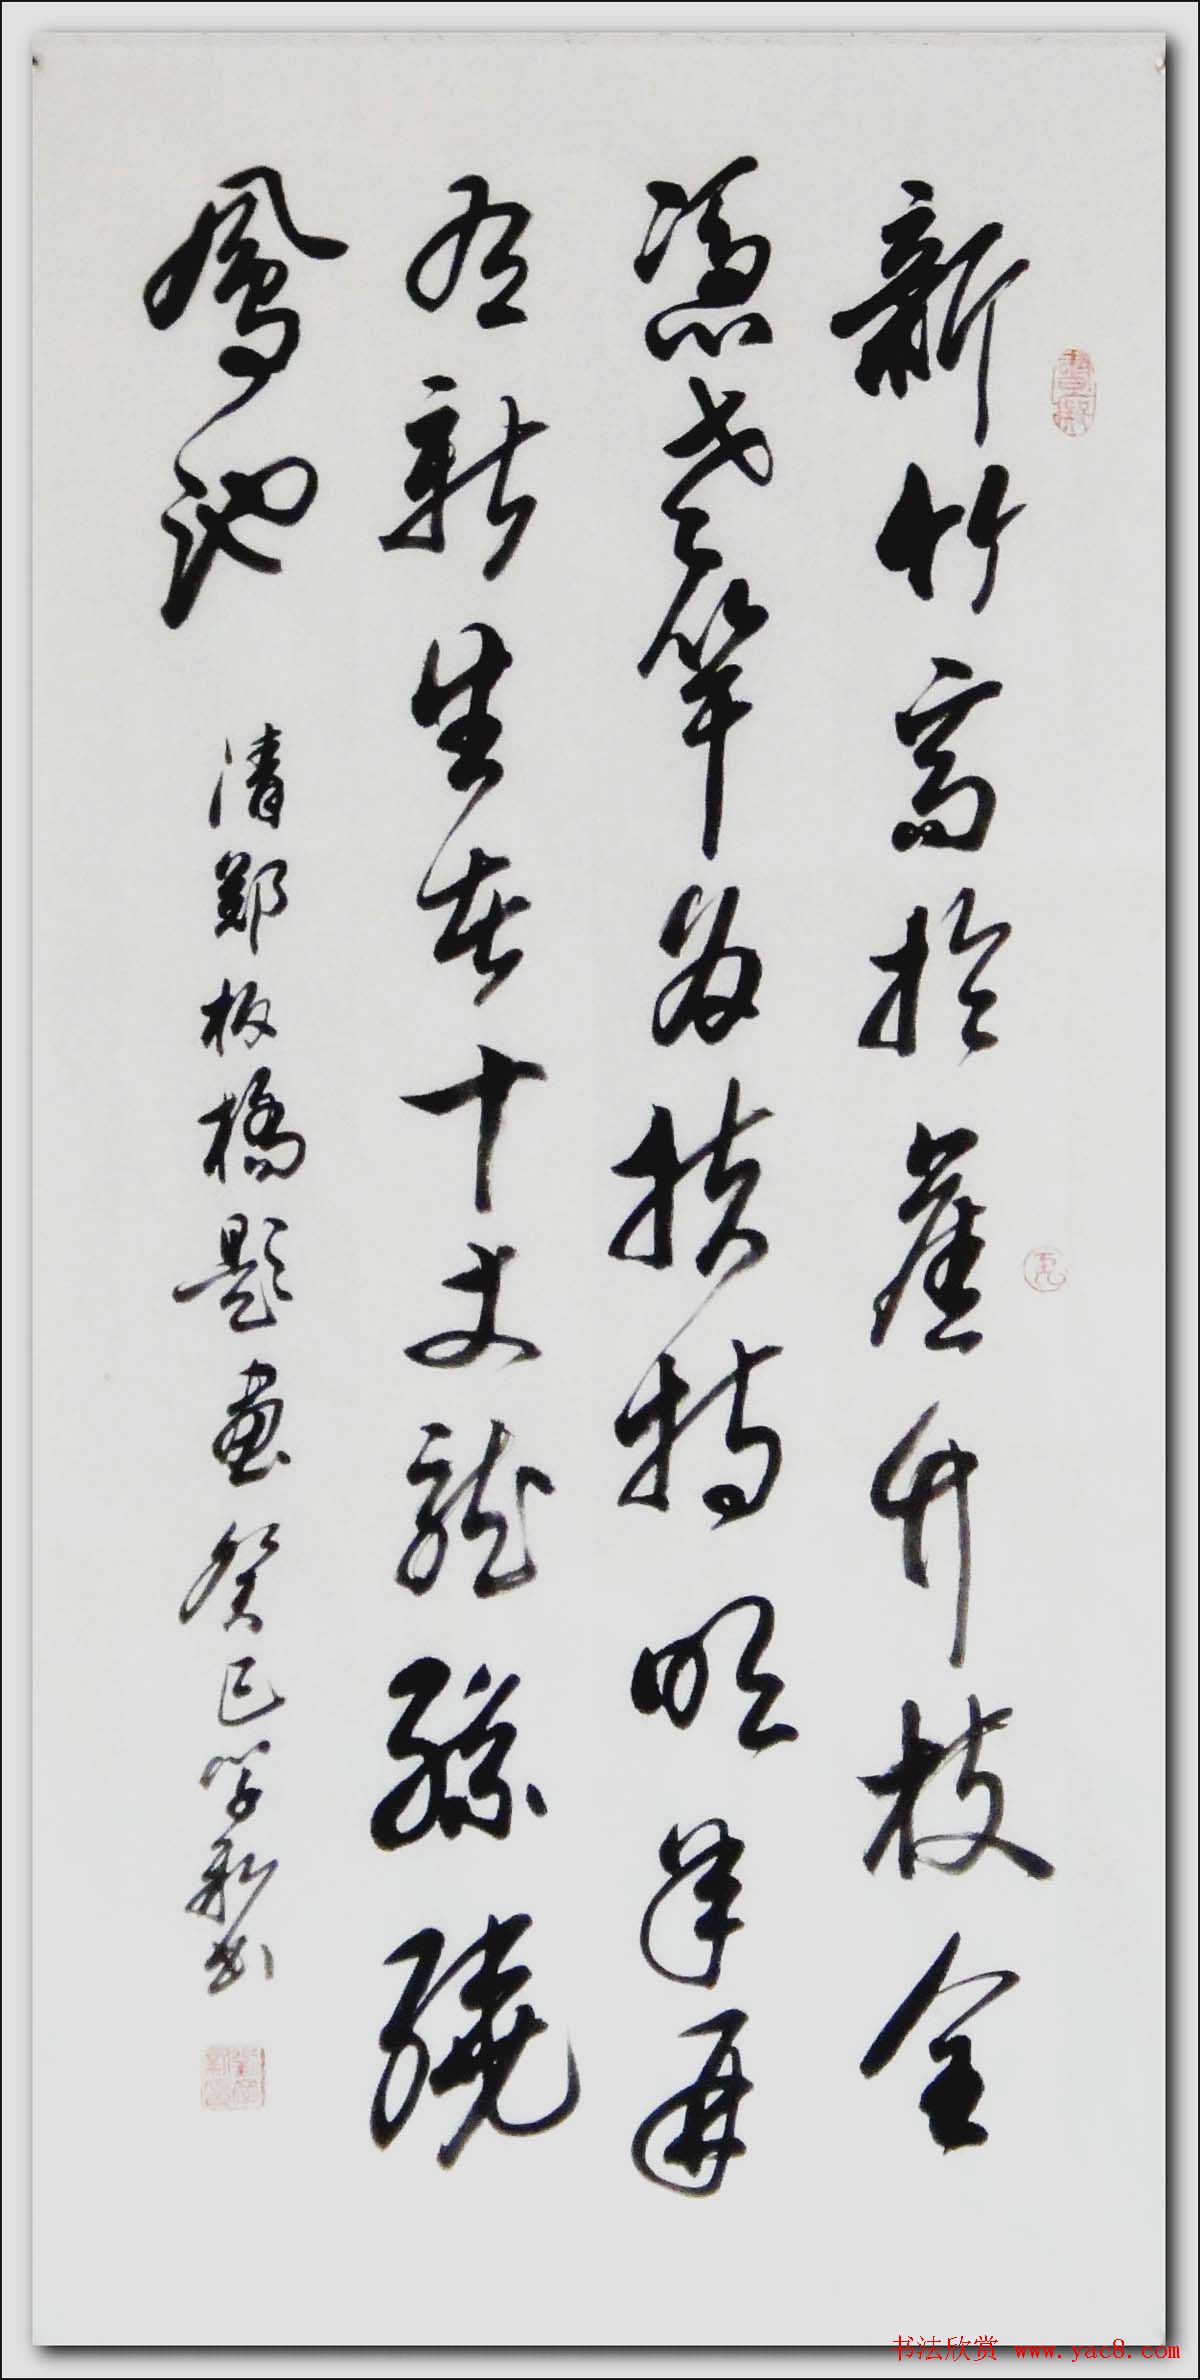 新竹高於舊竹枝全
憑老竿為扶持明年再
有新生者十丈龍孫繞
鳳池
清鄭板橋題畫 癸巳學新書
书法欣赏 www.yac8.com